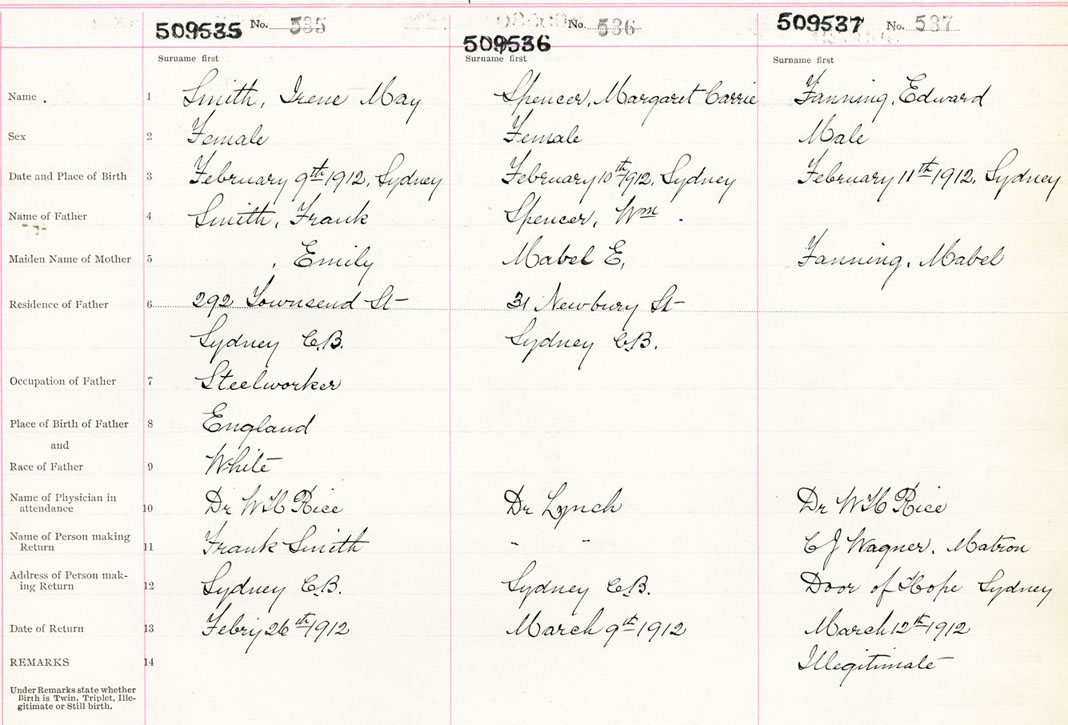 509535 No. 535 509536 No. 536 509537 No. 537
Surname first Surname first Surname first
Name . 1 Smith, Irene May Spencer, Margaret Carrie Fanning, Edward
Sex 2 Female Female Male
Date and Place of Birth 3 February 9th 1912, Sydney February 10th 1912, Sydney February 11th 1912, Sydney
Name of Father 4 Smith, Frank Spencer, Wm
Maiden Name of Mother 5 , Emily Mabel E, Fanning, Mabel
Residence of Father 6 292 Townsend St 31 Newbury St
Sydney C.B. Sydney C.B.
Occupation of Father 7 Steelworker
Place of Birth of Father 8 England
and
Race of Father 9 White
Name of Physician in
attendance 10 Dr W H Rice Dr Lynch Dr W H Rice
Name of Person making
Return 11 Frank Smith " " C J Wagner, Matron
Address of Person mak-
ing Return 12 Sydney C.B. Sydney C.B. Door of Hope Sydney
Date of Return 13 Febry 26th 1912 March 9th 1912 March 12th 1912
REMARKS 14 Illegitimate
Under Remarks state whether
Birth is Twin, Triplet, Ille-
gitimate or Still birth.